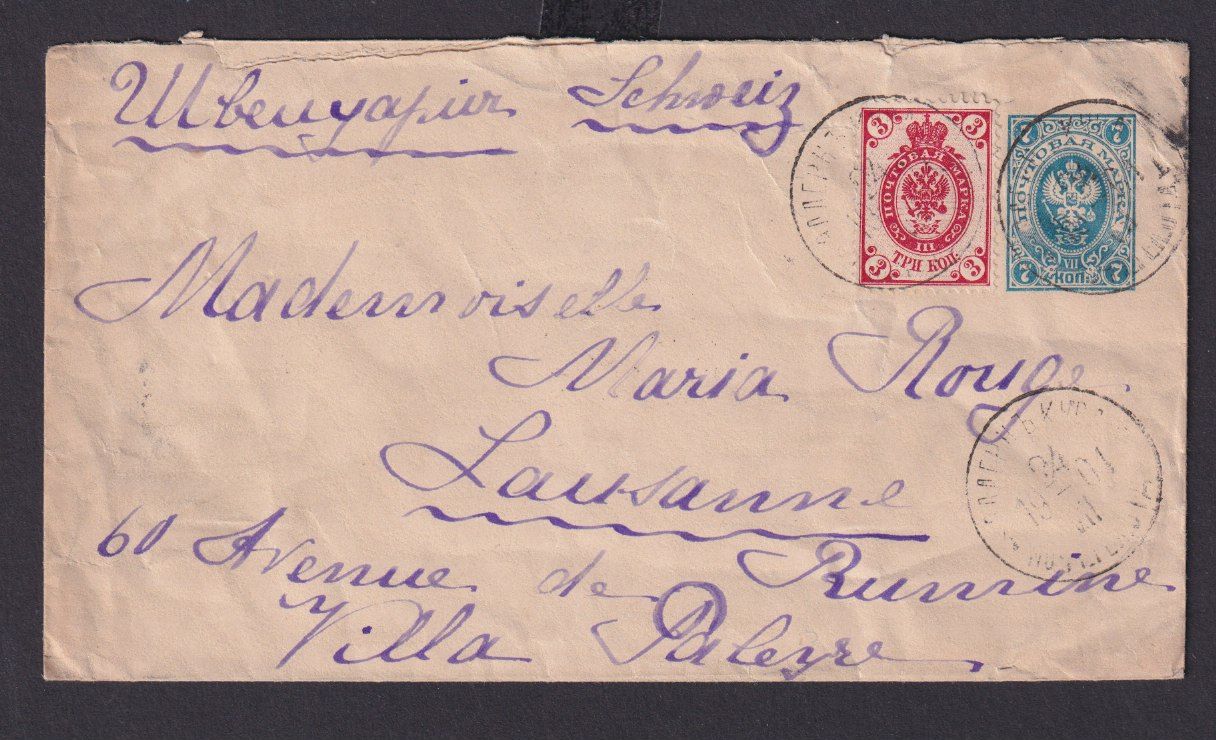 Швейцария Schweiz
3 3
ПОЧТОВАЯ МАРКА
III
ТРИ КОП.
3 3
7 7
ПОЧТОВАЯ МАРКА
VII
КОП.
7 7
Mademoiselle
Maria Rouge
Lausanne
60 Avenue de Rumine
Villa Paleyre